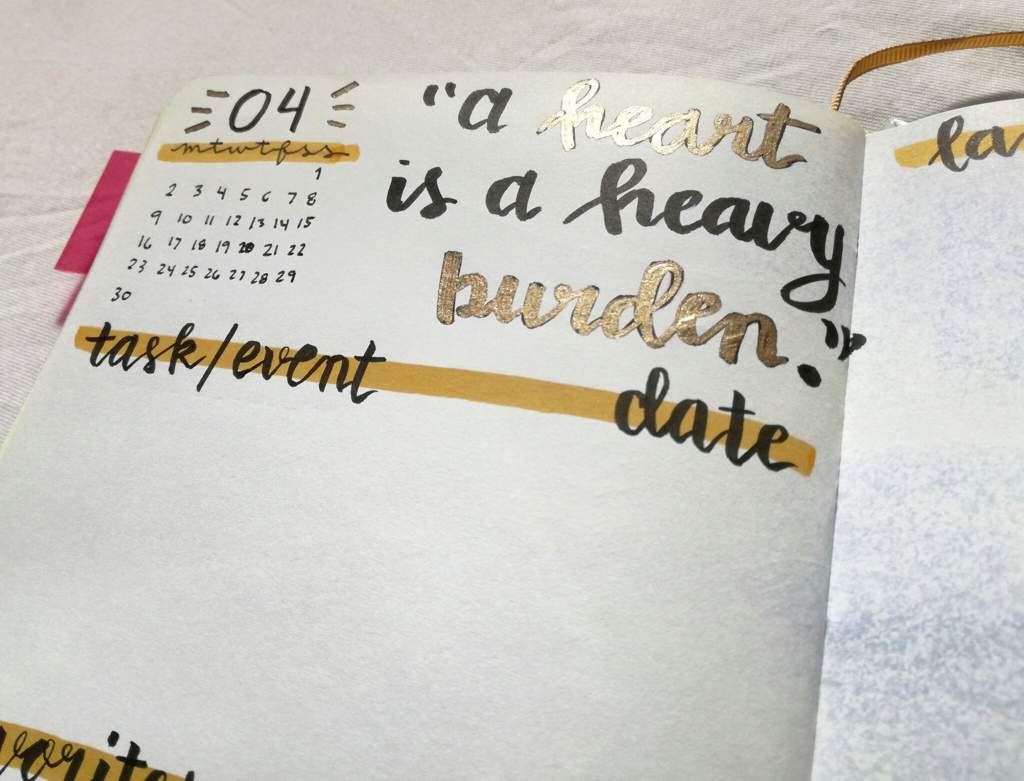 04
mtwtfss
1
2 3 4 5 6 7 8
9 10 11 12 13 14 15
16 17 18 19 20 21 22
23 24 25 26 27 28 29
30
"a heart
is a heavy
burden."
task/event date
la